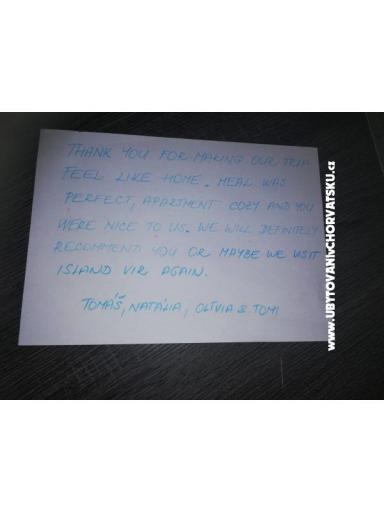 THANK YOU FOR MAKING OUR TRIP
FEEL LIKE HOME. MEAL WAS
PERFECT, APARTMENT COZY AND YOU
WERE NICE TO US. WE WILL DEFINITELY
RECOMMEND YOU OR MAYBE WE VISIT
ISLAND VIR AGAIN.
TOMÁŠ, NATÁLIA, OLÍVIA & TOMI
WWW.UBYTOVANIVCHORVATSKU.cz